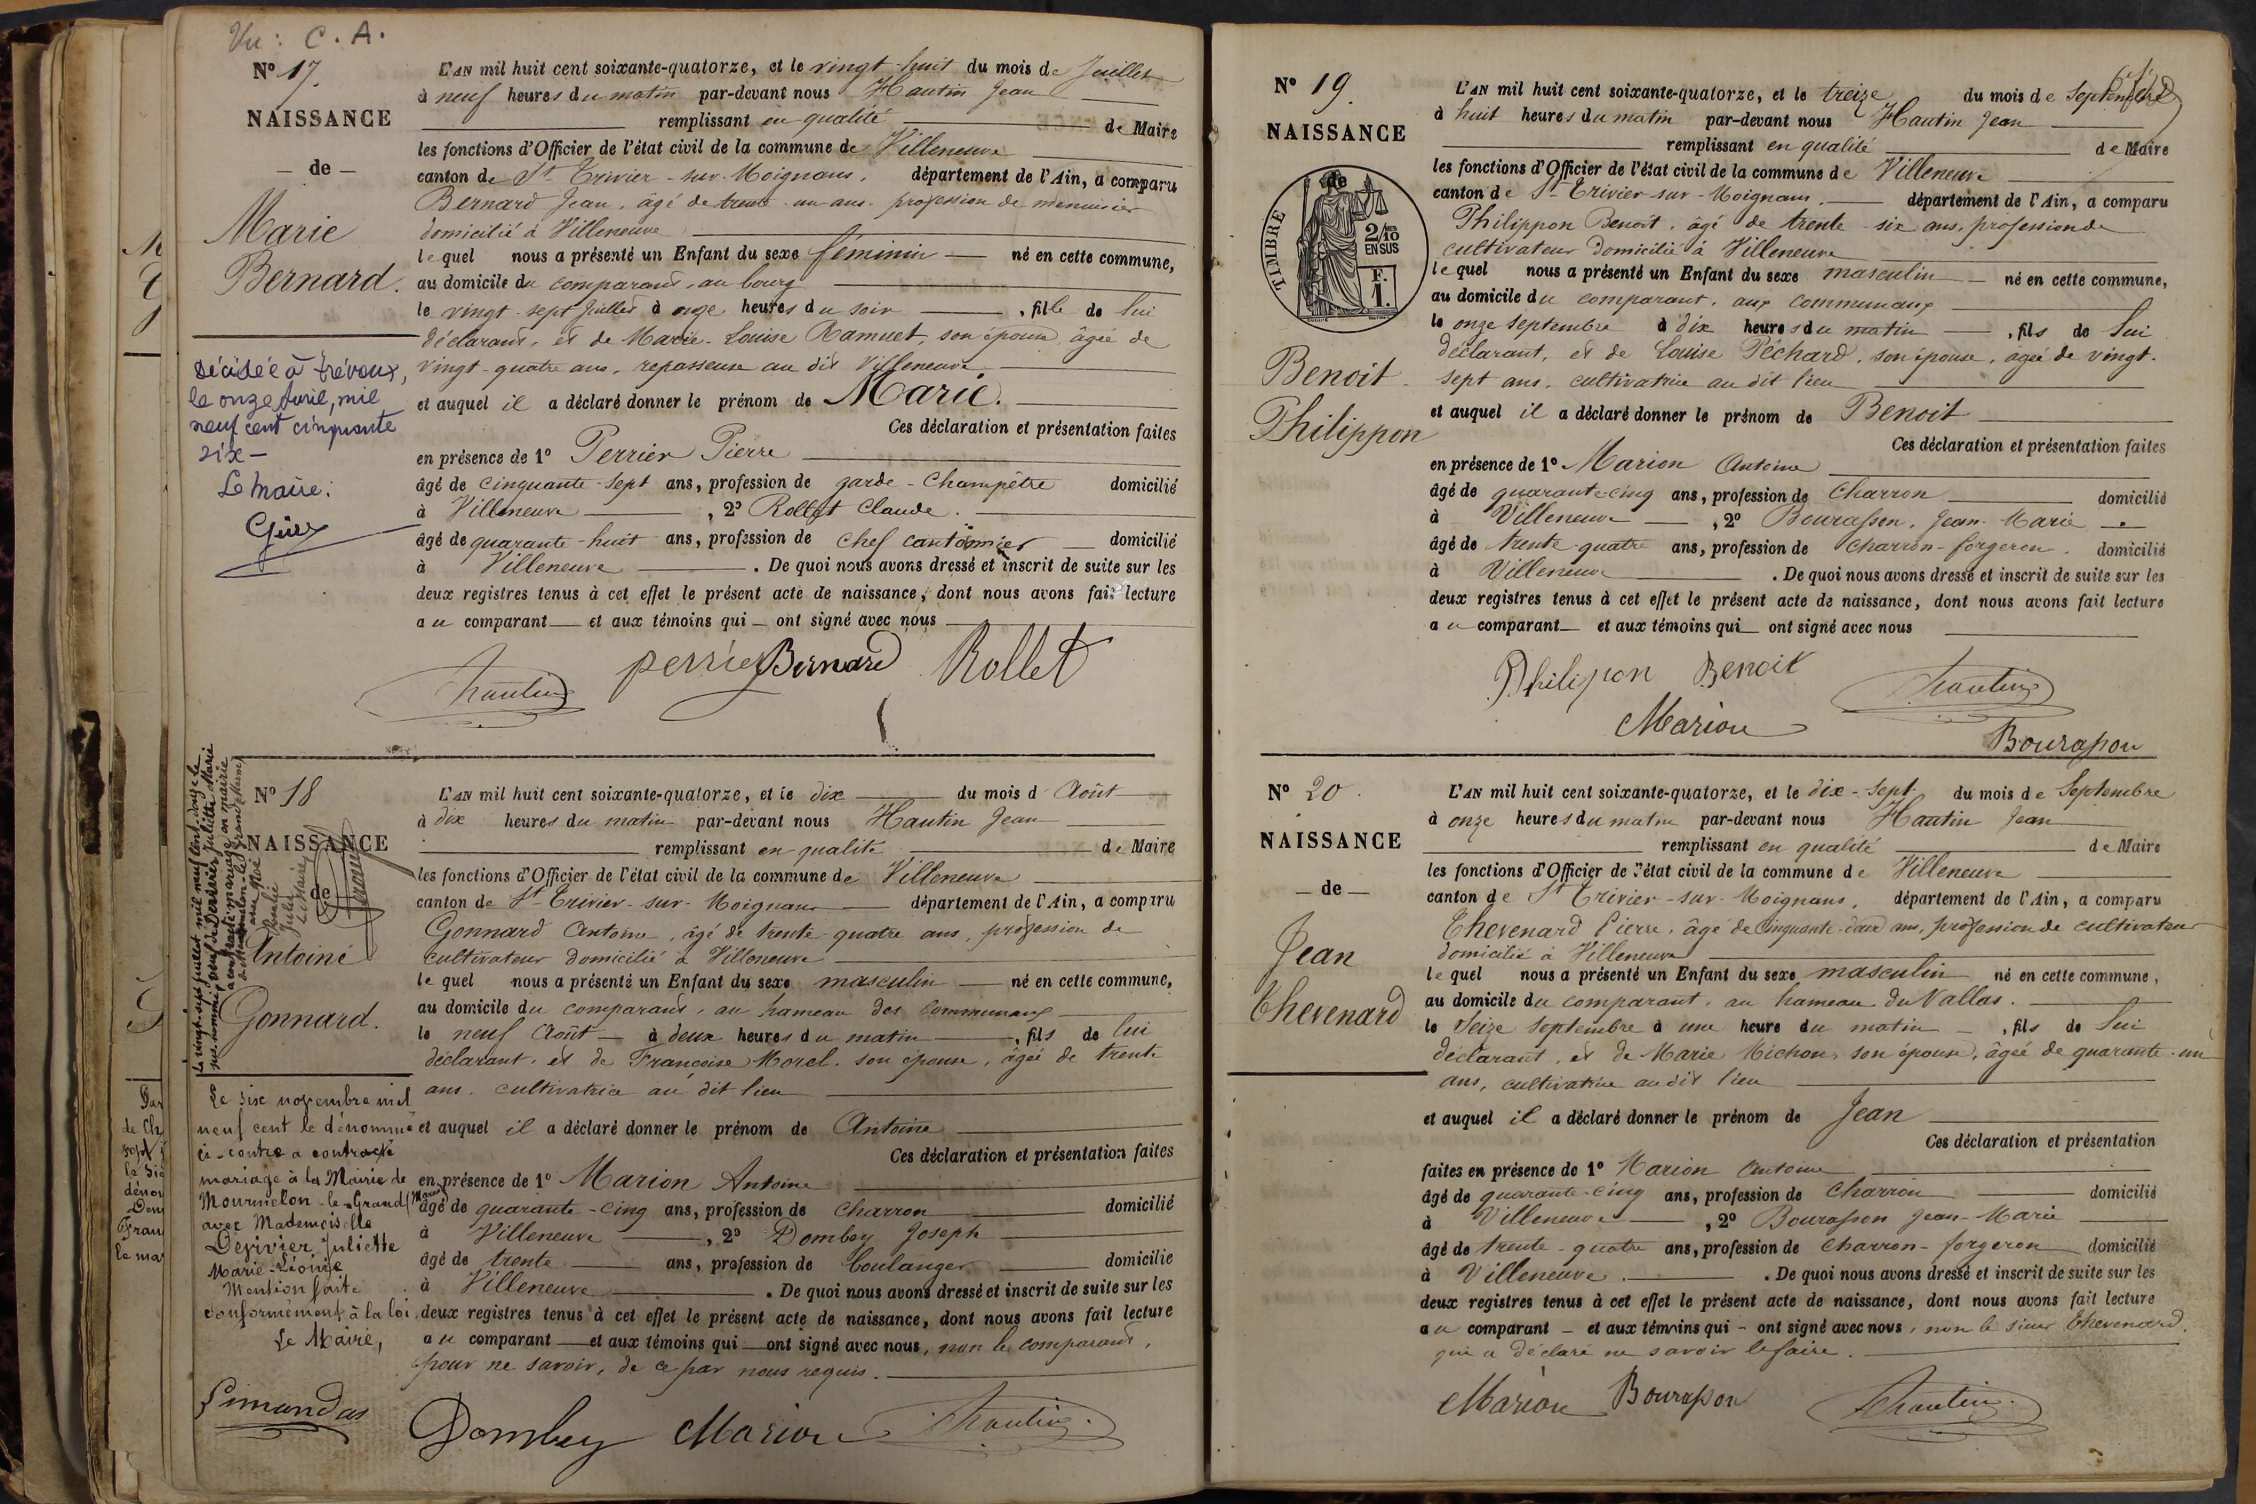 Vu : C. A.
N° 17.
NAISSANCE
— de —
Marie
Bernard.
Décédée à Trévoux,
le onze Avril, mil
neuf cent cinquante
six —
Le Maire :
L'AN mil huit cent soixante-quatorze, et le vingt-huit du mois de Juillet
à neuf heures du matin par-devant nous Hautin Jean
remplissant en qualité de Maire
les fonctions d'Officier de l'état civil de la commune de Villeneuve
canton de St Trivier-sur-Moignans, département de l'Ain, a comparu
Bernard Jean, âgé de trente-un ans, profession de menuisier
domicilié à Villeneuve
lequel nous a présenté un Enfant du sexe féminin né en cette commune,
au domicile du comparant, au bourg
le vingt-sept Juillet à onze heures du soir, fille de lui
déclarant, et de Marie-Louise Ramuet, son épouse, âgée de
vingt-quatre ans, repasseuse au dit Villeneuve
et auquel il a déclaré donner le prénom de Marie.
Ces déclaration et présentation faites
en présence de 1° Perrier Pierre
âgé de cinquante-sept ans, profession de garde-Champêtre domicilié
à Villeneuve, 2° Rollet Claude.
âgé de quarante-huit ans, profession de chef cantonnier domicilié
à Villeneuve. De quoi nous avons dressé et inscrit de suite sur les
deux registres tenus à cet effet le présent acte de naissance, dont nous avons fait lecture
au comparant et aux témoins qui ont signé avec nous
perrier Bernard Rollet
Hautin
N° 18
NAISSANCE
de
Antoine
Gonnard.
Le vingt-sept juillet mil neuf cent onze le
sus-nommé, veuf de Derivier Juliette Marie
a contracté mariage en mairie
de Mourmelon-le-Grand (Marne)
Le Maire,
Le six novembre mil
neuf cent le dénommé
ci-contre a contracté
mariage à la Mairie de
Mourmelon-le-Grand (Marne)
avec Mademoiselle
Derivier Juliette
Marie-Léonie
Mention faite
conformément à la loi
Le Maire,
Limandas
L'AN mil huit cent soixante-quatorze, et le dix du mois d'Août
à dix heures du matin par-devant nous Hautin Jean
remplissant en qualité de Maire
les fonctions d'Officier de l'état civil de la commune de Villeneuve
canton de St Trivier-sur-Moignans département de l'Ain, a comparu
Gonnard Antoine, âgé de trente-quatre ans, profession de
cultivateur domicilié à Villeneuve
lequel nous a présenté un Enfant du sexe masculin né en cette commune,
au domicile du comparant, au hameau des Communaux
le neuf Août à deux heures du matin, fils de lui
déclarant, et de Françoise Morel, son épouse, âgée de trente
ans, cultivatrice au dit lieu
et auquel il a déclaré donner le prénom de Antoine
Ces déclaration et présentation faites
en présence de 1° Marion Antoine
âgé de quarante-cinq ans, profession de charron domicilié
à Villeneuve, 2° Dombey Joseph
âgé de trente ans, profession de boulanger domicilié
à Villeneuve. De quoi nous avons dressé et inscrit de suite sur les
deux registres tenus à cet effet le présent acte de naissance, dont nous avons fait lecture
au comparant et aux témoins qui ont signé avec nous, non le comparant,
pour ne savoir, de ce par nous requis.
Dombey Marion Hautin
N° 19.
NAISSANCE
de
TIMBRE
2/10 EN SUS
F. 1.
Benoit
Philippon
L'AN mil huit cent soixante-quatorze, et le treize du mois de Septembre
à huit heures du matin par-devant nous Hautin Jean
remplissant en qualité de Maire
les fonctions d'Officier de l'état civil de la commune de Villeneuve
canton de St Trivier-sur-Moignans, département de l'Ain, a comparu
Philippon Benoit, âgé de trente-six ans, profession de
cultivateur domicilié à Villeneuve
lequel nous a présenté un Enfant du sexe masculin né en cette commune,
au domicile du comparant, aux communaux
le onze Septembre à dix heures du matin, fils de lui
déclarant, et de Louise Péchard, son épouse, âgée de vingt-
sept ans, cultivatrice au dit lieu
et auquel il a déclaré donner le prénom de Benoit
Ces déclaration et présentation faites
en présence de 1° Marion Antoine
âgé de quarante-cinq ans, profession de charron domicilié
à Villeneuve, 2° Bourasson, Jean-Marie
âgé de trente-quatre ans, profession de charron-forgeron, domicilié
à Villeneuve. De quoi nous avons dressé et inscrit de suite sur les
deux registres tenus à cet effet le présent acte de naissance, dont nous avons fait lecture
au comparant et aux témoins qui ont signé avec nous
Philipon Benoit Hautin
Marion
Bourasson
N° 20.
NAISSANCE
— de —
Jean
Thevenard
L'AN mil huit cent soixante-quatorze, et le dix-sept du mois de Septembre
à onze heures du matin par-devant nous Hautin Jean
remplissant en qualité de Maire
les fonctions d'Officier de l'état civil de la commune de Villeneuve
canton de St Trivier-sur-Moignans, département de l'Ain, a comparu
Thevenard Pierre, âgé de cinquante-deux ans, profession de cultivateur
domicilié à Villeneuve
lequel nous a présenté un Enfant du sexe masculin né en cette commune,
au domicile du comparant, au hameau du Vallas.
le seize Septembre à une heure du matin, fils de lui
déclarant, et de Marie Michon, son épouse, âgée de quarante-un
ans, cultivatrice au dit lieu
et auquel il a déclaré donner le prénom de Jean
Ces déclaration et présentation
faites en présence de 1° Marion Antoine
âgé de quarante-cinq ans, profession de charron domicilié
à Villeneuve, 2° Bourasson Jean-Marie
âgé de trente-quatre ans, profession de charron-forgeron domicilié
à Villeneuve. De quoi nous avons dressé et inscrit de suite sur les
deux registres tenus à cet effet le présent acte de naissance, dont nous avons fait lecture
au comparant et aux témoins qui ont signé avec nous, non le sieur Thevenard,
qui a déclaré ne savoir le faire.
Marion Bourasson Hautin